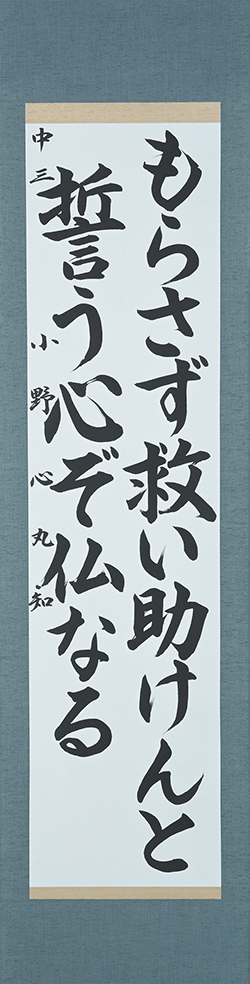 もらさず救い助けんと
誓う心ぞ仏なる
中三 小野心丸知